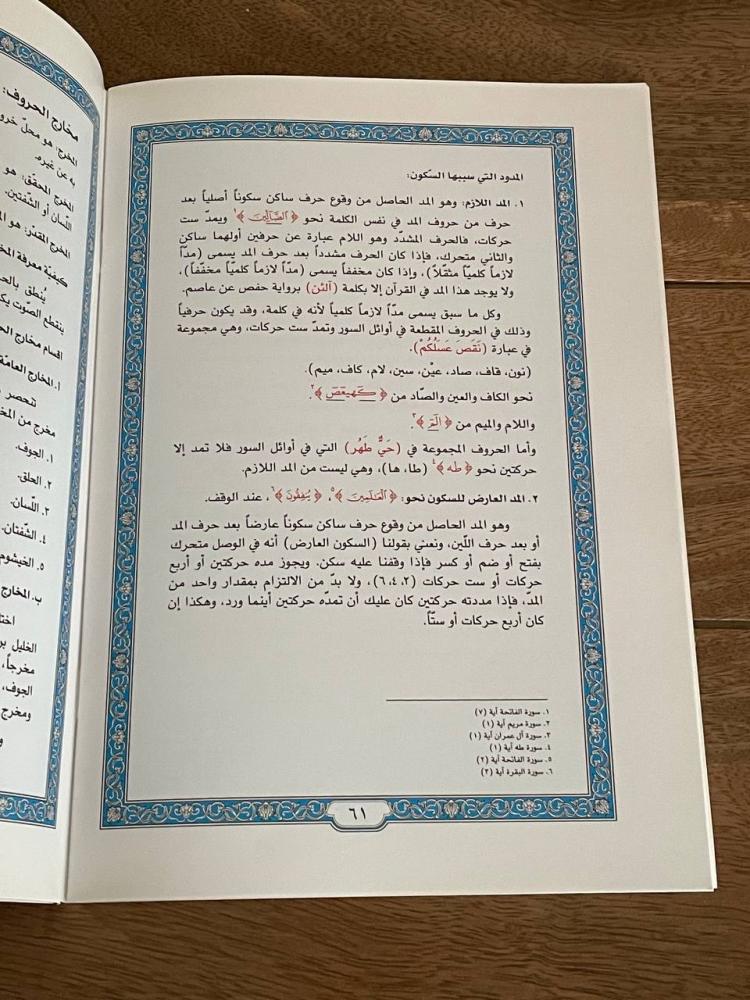 المدود التي سببها السكون:
١. المد اللازم: وهو المد الحاصل من وقوع حرف ساكن سكوناً أصلياً بعد
حرف من حروف المد في نفس الكلمة نحو ﴿الضَّالِّينَ﴾١ ويمدّ ست
حركات، فالحرف المشدّد وهو اللام عبارة عن حرفين أولهما ساكن
والثاني متحرك، فإذا كان الحرف مشدداً بعد حرف المد يسمى (مدّاً
لازماً كلميّاً مثقلاً)، وإذا كان مخففاً يسمى (مدّاً لازماً كلميّاً مخففاً)،
ولا يوجد هذا المد في القرآن إلا بكلمة (آلئن) برواية حفص عن عاصم.
وكل ما سبق يسمى مدّاً لازماً كلمياً لأنه في كلمة، وقد يكون حرفياً
وذلك في الحروف المقطعة في أوائل السور وتمدّ ست حركات، وهي مجموعة
في عبارة (نَقَصَ عَسَلُكُمْ).
(نون، قاف، صاد، عيْن، سين، لام، كاف، ميم).
نحو الكاف والعين والصّاد من ﴿كهيعص﴾٢.
واللام والميم من ﴿الم﴾٣.
وأما الحروف المجموعة في (حَيٌّ طَهُر) التي في أوائل السور فلا تمد إلا
حركتين نحو ﴿طه﴾٤ (طا، ها)، وهي ليست من المد اللازم.
٢. المد العارض للسكون نحو: ﴿الْعَالَمِينَ﴾٥، ﴿يُنفِقُونَ﴾٦، عند الوقف.
وهو المد الحاصل من وقوع حرف ساكن سكوناً عارضاً بعد حرف المد
أو بعد حرف اللّين، ونعني بقولنا (السكون العارض) أنه في الوصل متحرك
بفتح أو ضم أو كسر فإذا وقفنا عليه سكن. ويجوز مده حركتين أو أربع
حركات أو ست حركات (٢، ٤، ٦)، ولا بدّ من الالتزام بمقدار واحد من
المدّ، فإذا مددته حركتين كان عليك أن تمدّه حركتين أينما ورد، وهكذا إن
كان أربع حركات أو ستّاً.
١. سورة الفاتحة آية (٧)
٢. سورة مريم آية (١)
٣. سورة آل عمران آية (١)
٤. سورة طه آية (١)
٥. سورة الفاتحة آية (٢)
٦. سورة البقرة آية (٣)
٦١
مخارج الحروف:
المخرج: هو محلّ
به عن غيره.
المخرج المحقق: هو
اللّسان أو الشّفتين.
المخرج المقدّر: هو
كيفيّة معرفة
يُنطق
ينقطع الصّوت
اقسام مخارج
أ. المخارج العامّة
تنحصر
مخرج من
١. الجوف.
٢. الحلق.
٣. اللّسان.
٤. الشّفتان.
٥. الخيشوم
ب. المخارج
الخليل
مخرجاً،
الجوف،
ومخرج